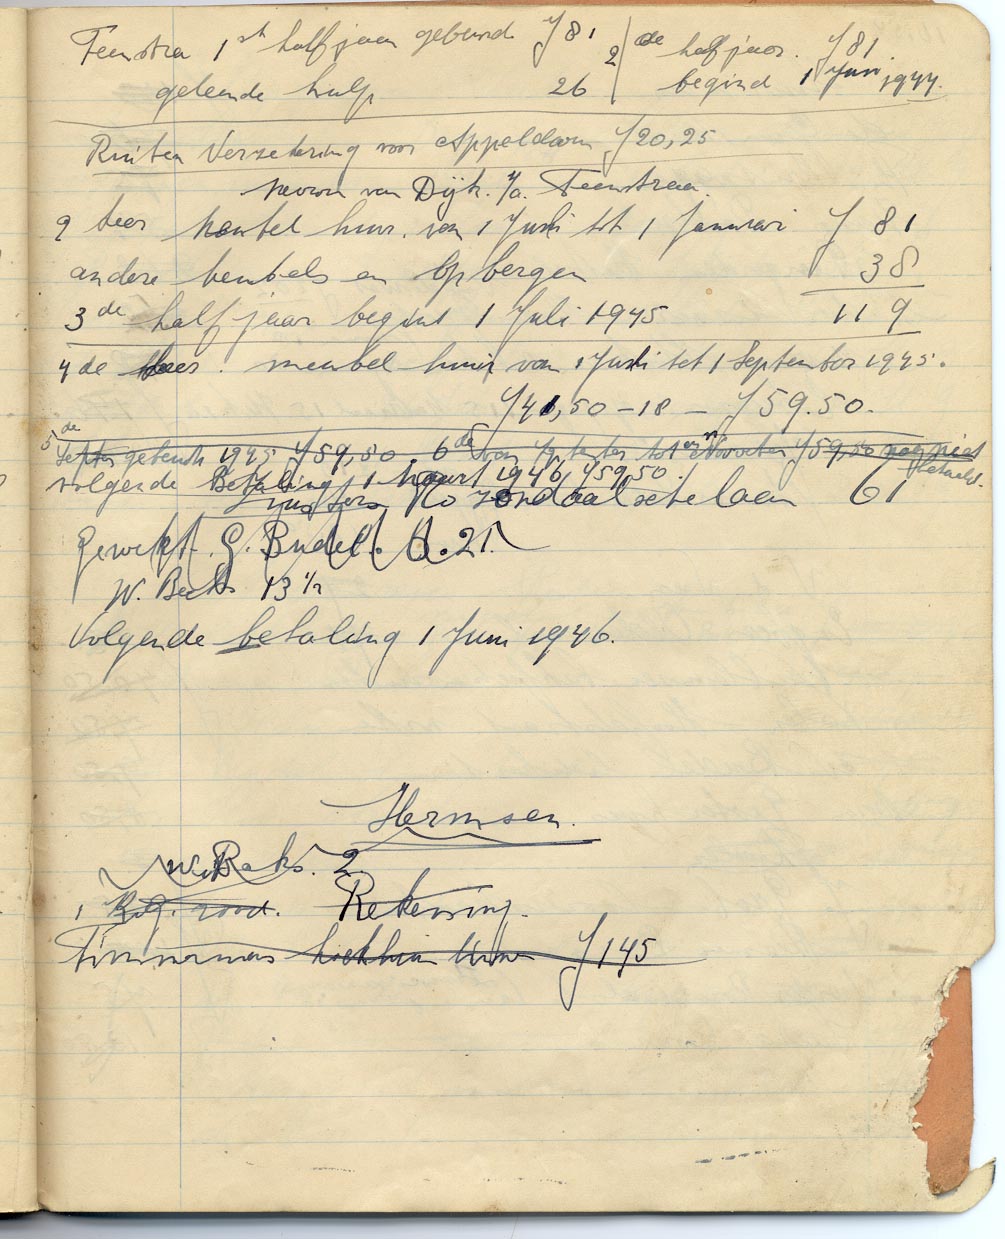 Feenstra 1st half jaar gebeurd ƒ 81 2de half jaar. ƒ 81
geleende hulp 26 begind 1 Juni 1944.
Ruiten Verzekering voor Appeldoorn ƒ 20,25
Mevrou van Dijk. p/a. Feenstraa.
2 meubel huur. van 1 Juli tot 1 Januari ƒ 81
andere meubels en opbergen 38
3de half jaar begint 1 Juli 1945 119
4de meubel huur van 1 Juli tot 1 September 1945.
ƒ 41,50 - 18 - ƒ 59.50.
5de
Septer gebeurt 1945 ƒ 59,50. 6de van tot ƒ 59,50 nog niet
betaald.
volgende Betaling 1 Maart 1946 ƒ 59,50
Rozendaalschelaan 61
Gewerkt. G. Budel. 21.
W. Beeks 13 1/2
Volgende betaling 1 Juni 1946.
Hermsen.
W. Beks. 2
1 rood. Rekening.
Timmerman ƒ 145